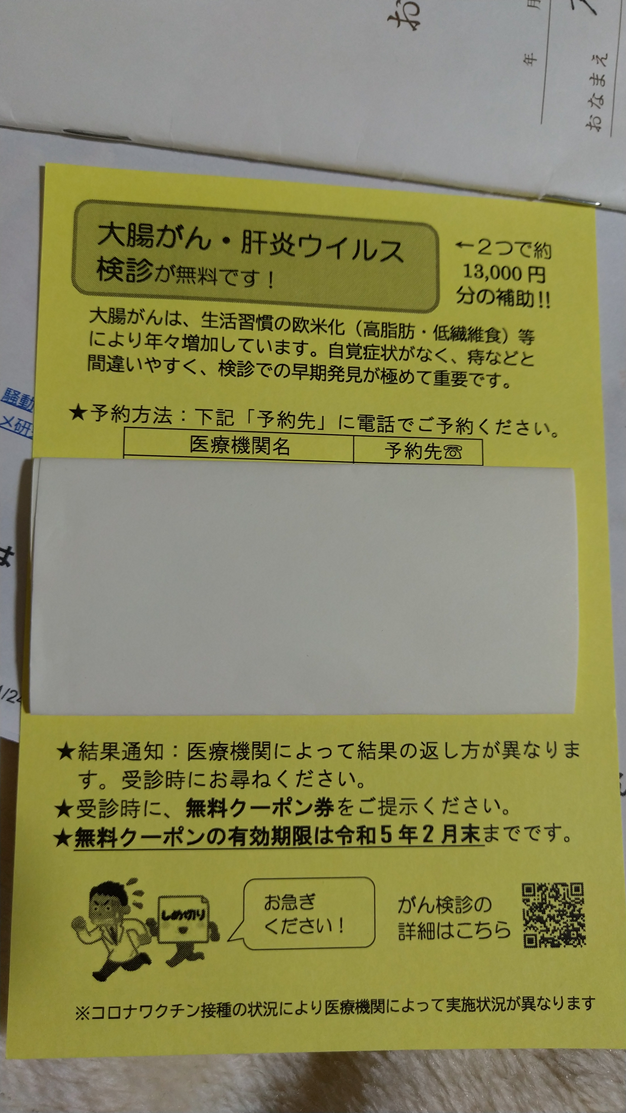 お
年
月
おなまえ
大腸がん・肝炎ウイルス
検診が無料です！
←２つで約
13,000円
分の補助!!
大腸がんは、生活習慣の欧米化（高脂肪・低繊維食）等
により年々増加しています。自覚症状がなく、痔などと
間違いやすく、検診での早期発見が極めて重要です。
騒動
メ研
★予約方法：下記「予約先」に電話でご予約ください。
医療機関名
予約先☎
は
/24
★結果通知：医療機関によって結果の返し方が異なりま
す。受診時にお尋ねください。
★受診時に、無料クーポン券をご提示ください。
★無料クーポンの有効期限は令和５年２月末までです。
しめ切り
お急ぎ
ください！
がん検診の
詳細はこちら
※コロナワクチン接種の状況により医療機関によって実施状況が異なります